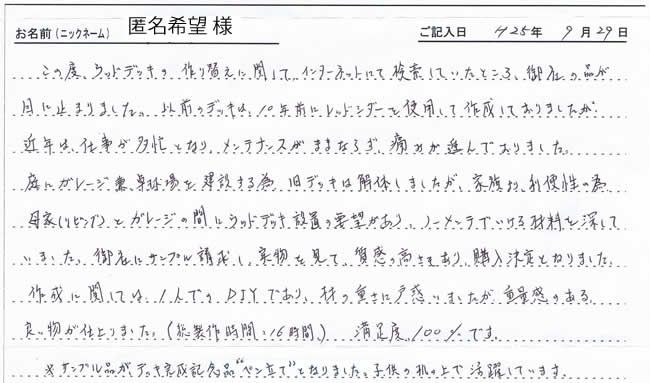 お名前(ニックネーム) 匿名希望 様 ご記入日 H25年 9月29日
この度、ウッドデッキの作り替えに関して、インターネットにて検索していたところ、御社の品が
目に止まりました。以前のデッキは、10年前にレッドシダーを使用して作成しておりましたが
近年は、仕事が多忙となり、メンテナンスがままならず、痛みが進んでおりました。
庭にガレージ兼卓球場を建設する為、旧デッキは解体しましたが、家族より、利便性の為
母家(リビング)とガレージの間にウッドデッキ設置の要望があり、ノーメンテでいける材料を深して
いました。御社にサンプル請求し、実物を見て、質感の高さもあり、購入決定となりました。
作成に関しては、1人でのDIYであり、材の重さに戸惑いましたが、重量感のある
良い物が仕上りました。(総製作時間:16時間) 満足度、100%です。
※サンプル品がデッキ完成記念品"ペン立て"となりました。子供の机の上で活躍しています。